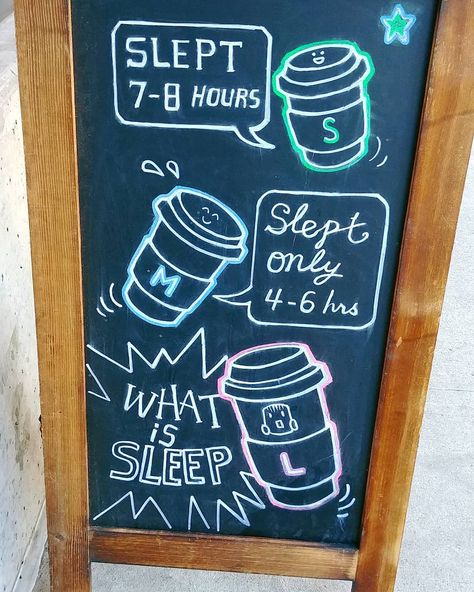 SLEPT
7-8 HOURS
S
M
Slept
only
4-6 hrs
WHAT
is
SLEEP
L